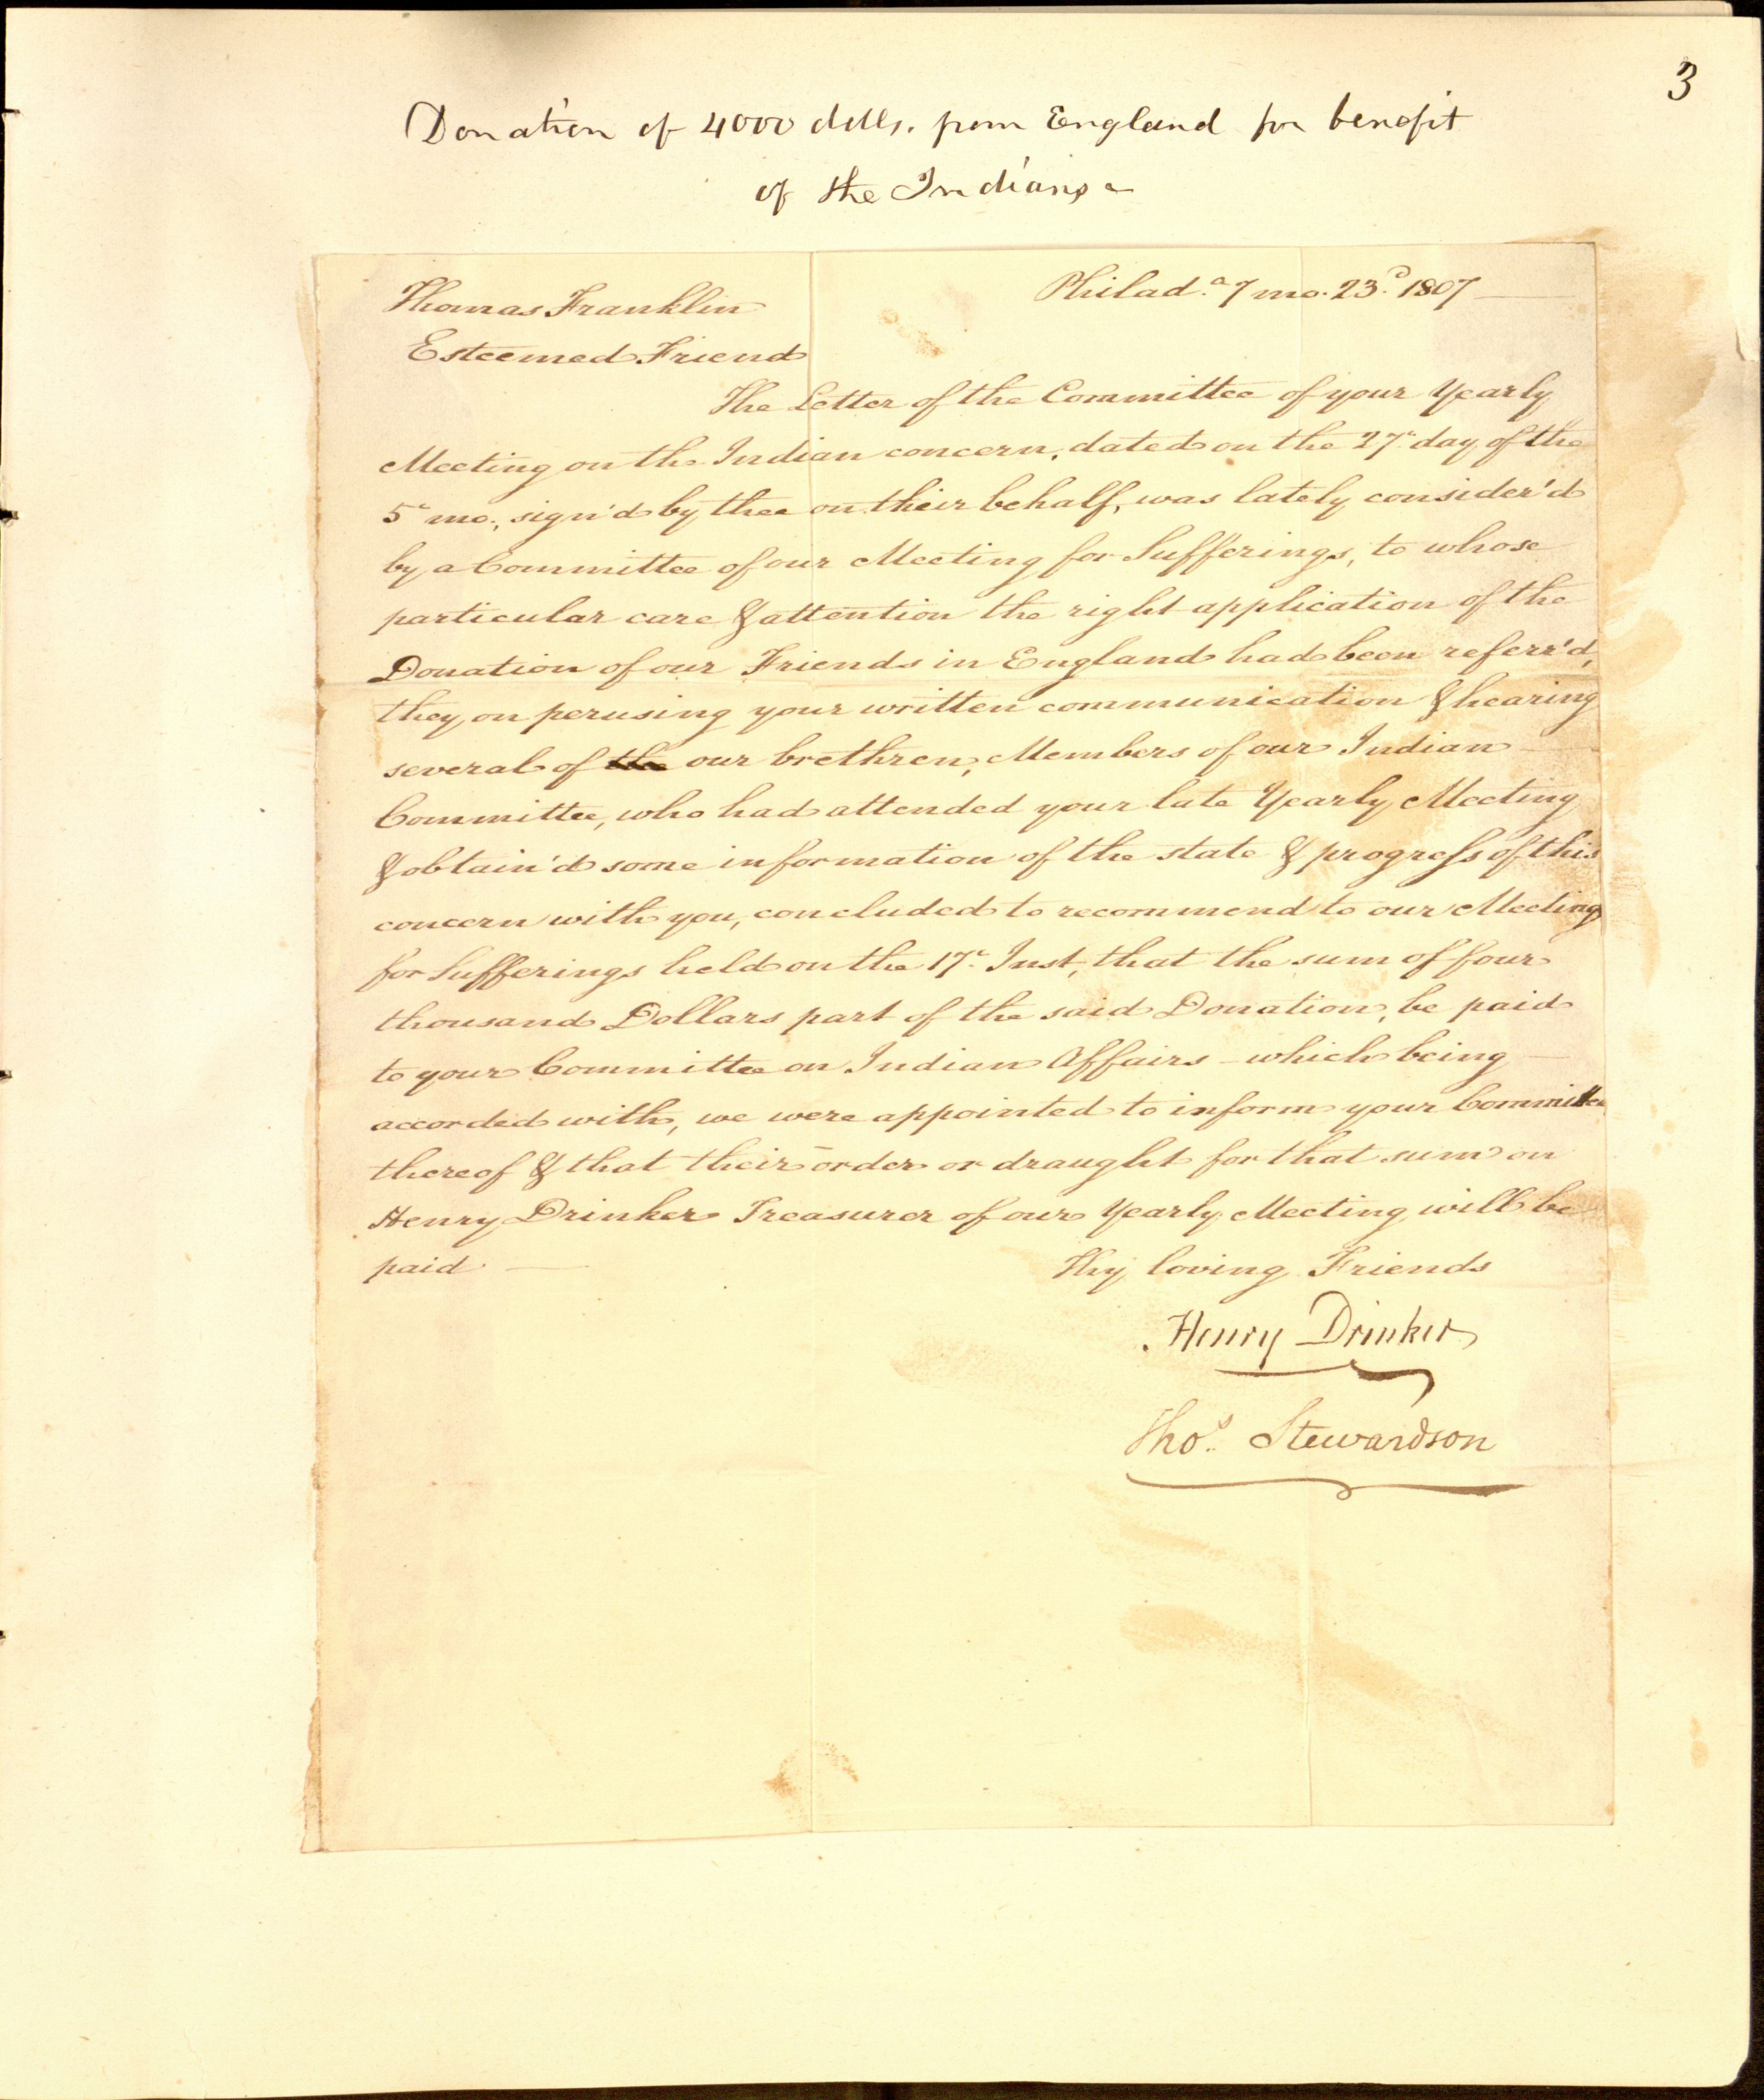 3
Donation of 4000 dolls. from England for benefit
of the Indians
Philad.a 7 mo. 23.d 1807
Thomas Franklin
Esteemed Friend
The Letter of the Committee of your Yearly
Meeting on the Indian concern, dated on the 27th day of the
5th mo., sign'd by thee on their behalf, was lately consider'd
by a Committee of our Meeting for Sufferings, to whose
particular care & attention the right application of the
Donation of our Friends in England had been referr'd,
they, on perusing your written communication & hearing
several of the our brethren, Members of our Indian
Committee, who had attended your late Yearly Meeting
& obtain'd some information of the state & progress of this
concern with you, concluded to recommend to our Meeting
for Sufferings held on the 17th Inst, that the sum of four
thousand Dollars part of the said Donation, be paid
to your Committee on Indian Affairs - which being
accorded with, we were appointed to inform your Committee
thereof & that their order or draught for that sum on
Henry Drinker Treasurer of our Yearly Meeting will be
paid
Thy loving Friends
Henry Drinker
Thos. Stewardson